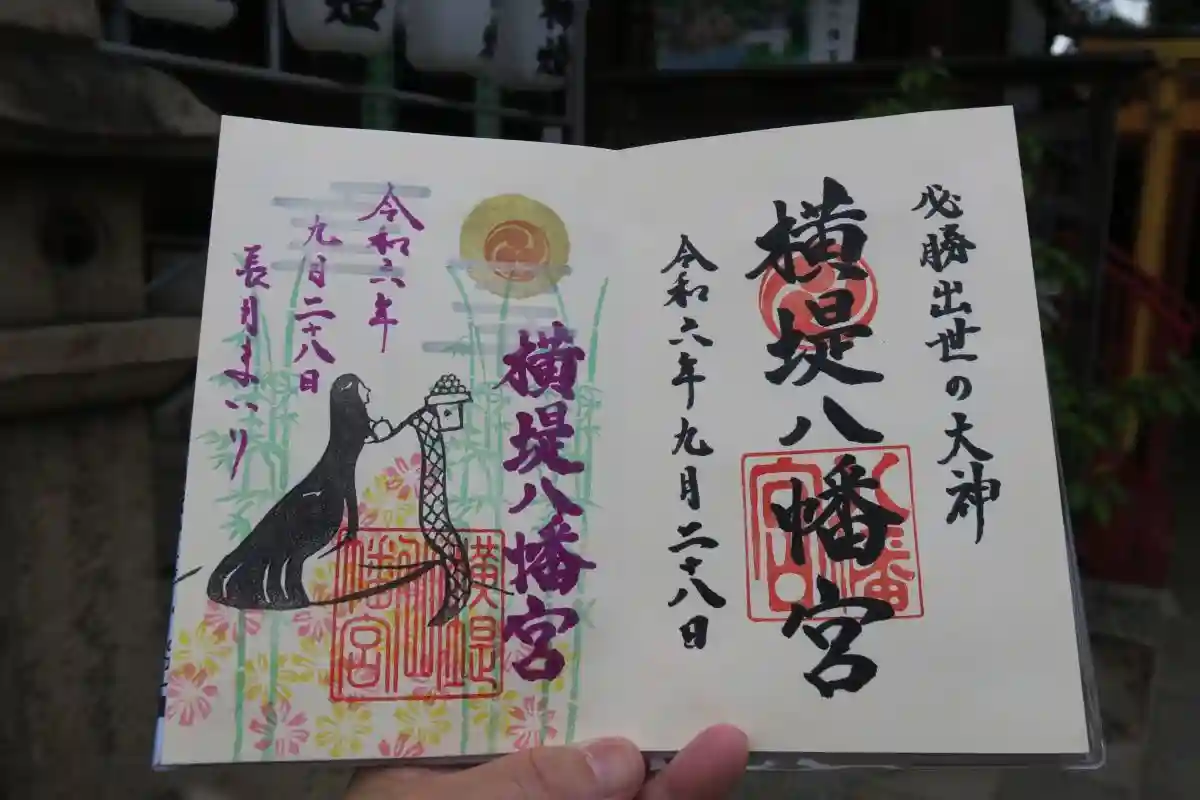 必勝出世の大神
横堤八幡宮
令和六年九月二十八日
横堤八幡宮
令和六年
九月二十八日
長月まいり
横堤
八幡宮